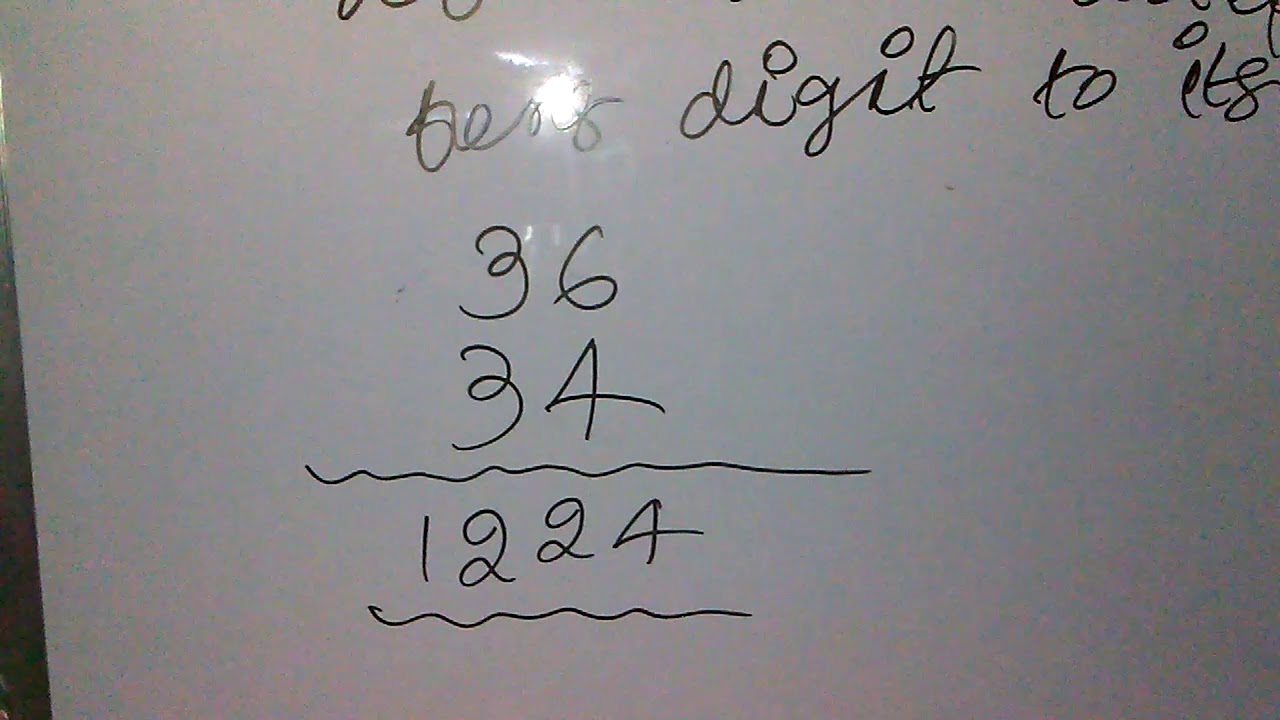 tens digit to its
36
34
1224